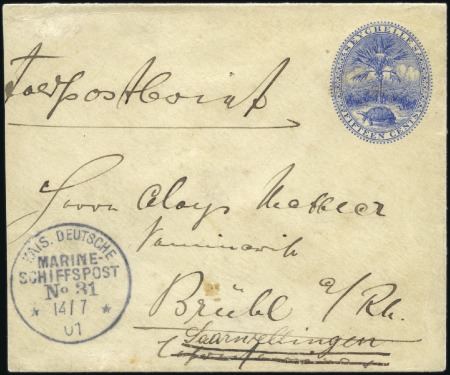 SEYCHELLES
FIFTEEN CENTS
Feldpostbrief
Herrn Aloys
Brühl a/Rh.
Saarwellingen
KAIS. DEUTSCHE
MARINE-
SCHIFFSPOST
No 31
* 14/7 *
01